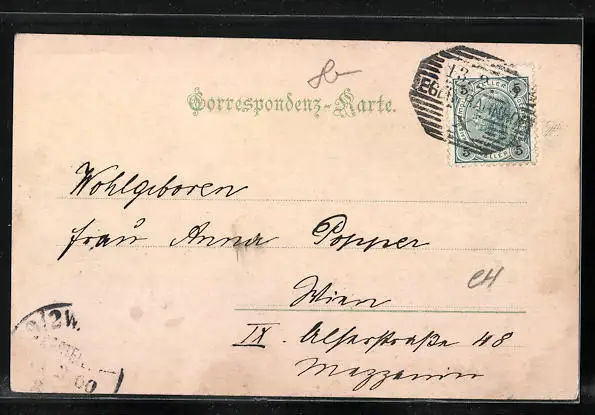 8-
Correspondenz-Karte.
Wohlgeboren
Frau Anna Popper
Wien
IX. Alserstraße 48
Mezzanin
CH
5 5
HELLER